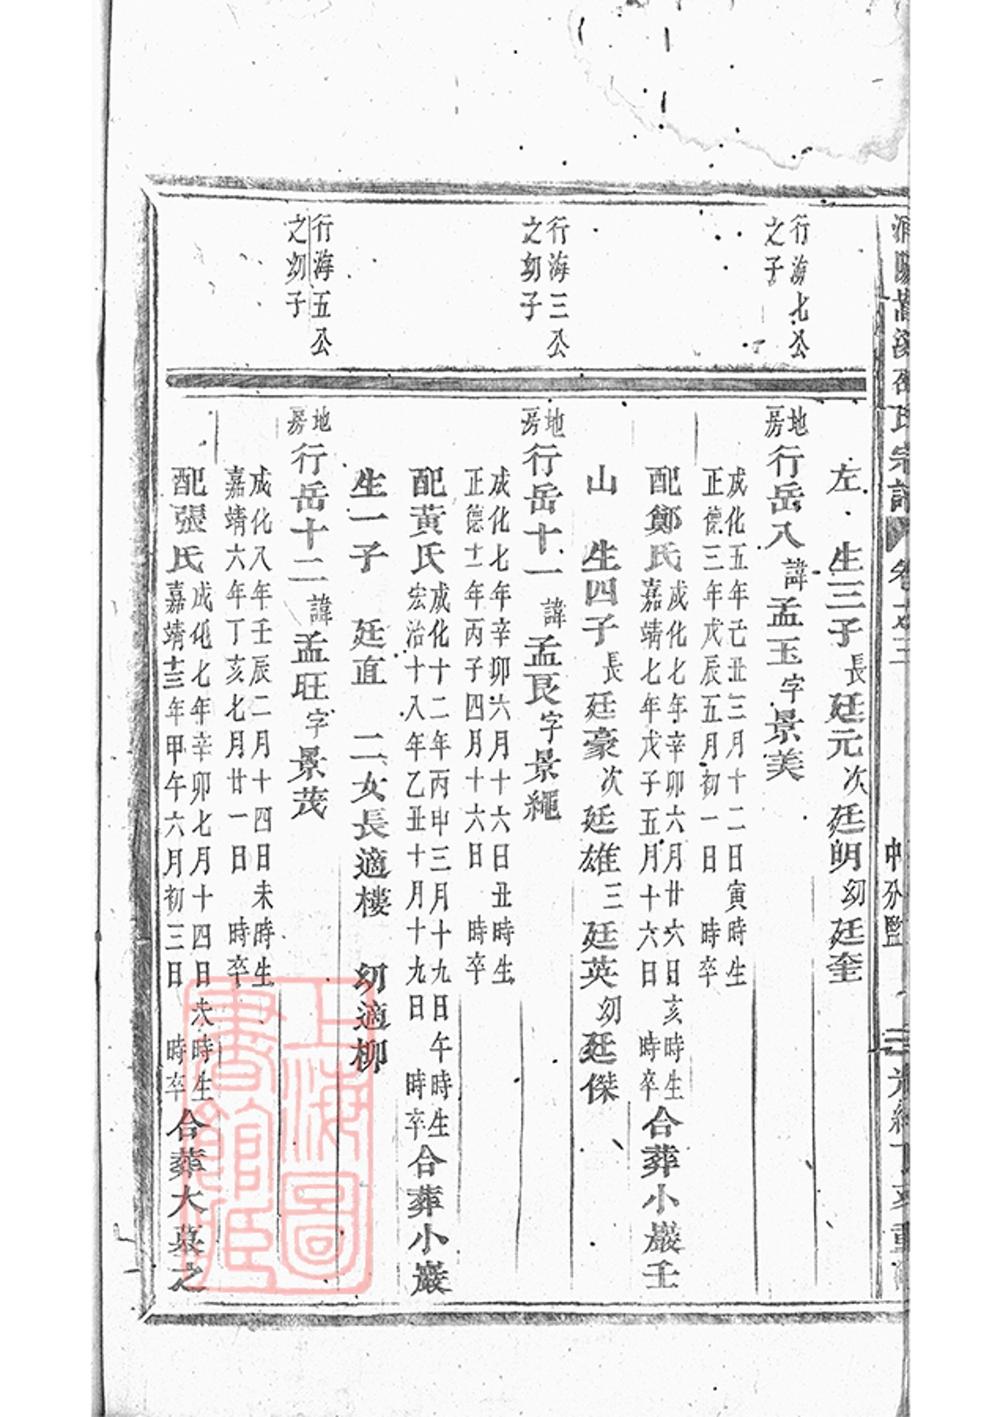 嵩溪 氏宗譜 卷之二 中分監 二 光緒丁亥重
左 生三子長廷元次廷明幼廷奎
行海七公
之子
地房行岳八諱孟玉字景美
成化五年己丑三月十二日寅時生
正德三年戊辰五月初一日 時卒
配鄭氏成化七年辛卯六月廿六日亥時生
嘉靖七年戊子五月十六日 時卒合葬小巖壬
山 生四子長廷豪次廷雄三廷英幼廷傑
行海三公
之幼子
地房行岳十一諱孟艮字景繩
成化七年辛卯六月十六日丑時生
正德十一年丙子四月十六日 時卒
配黃氏成化十二年丙申三月十九日午時生
宏治十八年乙丑十月十九日 時卒合葬小巖
生一子 廷直 二女長適樓 幼適柳
行海五公
之幼子
地房行岳十二諱孟旺字景茂
成化八年壬辰二月十四日未時生
嘉靖六年丁亥七月廿一日 時卒
配張氏成化七年辛卯七月十四日未時生
嘉靖十三年甲午六月初三日 時卒合葬大墓之
上海圖
書館藏